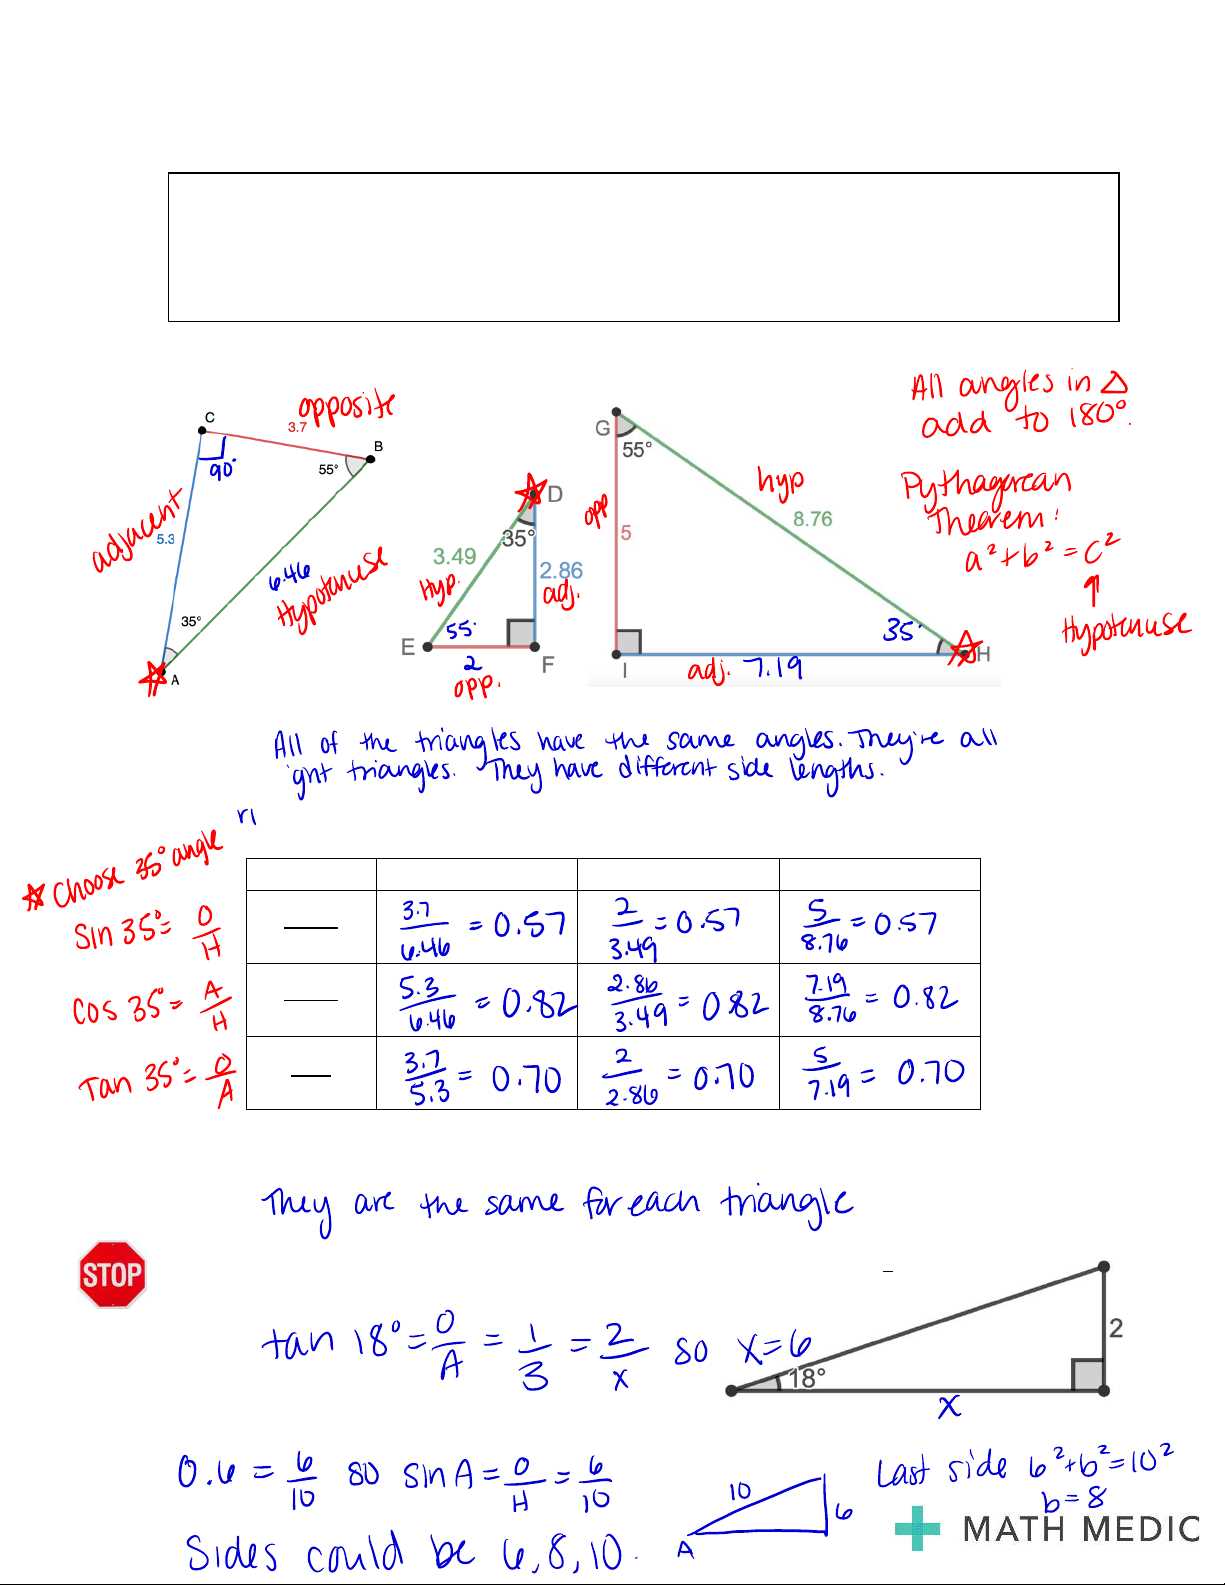 All angles in △
add to 180°.
Pythagorean
Theorem:
a² + b² = c²
↑
Hypotenuse
C
opposite
3.7
B
90°
55°
adjacent
5.3
6.46
Hypotenuse
35°
A
D
35°
3.49
Hyp.
2.86
adj.
55°
E
F
2
opp.
G
55°
hyp
8.76
opp
5
35°
H
I
adj. 7.19
All of the triangles have the same angles. They're all
ght triangles. They have different side lengths.
ri
☆ Choose 35° angle
Sin 35° = O/H
3.7/6.46 = 0.57
2/3.49 = 0.57
5/8.76 = 0.57
Cos 35° = A/H
5.3/6.46 = 0.82
2.86/3.49 = 0.82
7.19/8.76 = 0.82
Tan 35° = O/A
3.7/5.3 = 0.70
2/2.86 = 0.70
5/7.19 = 0.70
They are the same for each triangle
STOP
tan 18° = O/A = 1/3 = 2/x so x = 6
2
18°
x
0.6 = 6/10 so sin A = O/H = 6/10
10
6
A
Last side 6² + b² = 10²
b = 8
Sides could be 6, 8, 10.
MATH MEDIC